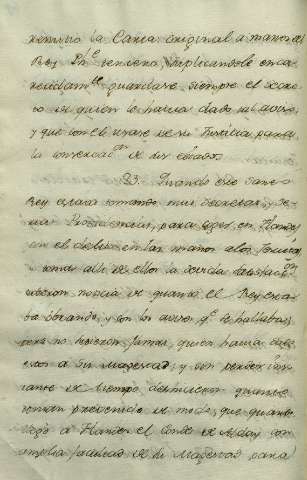 remitio la Carta original a manos del
Rey Phe. tercero, suplicandole enca
recidamte. guardase siempre el secre
to de quien le havia dado tal aviso,
y que con el usase de su Justicia para
la conservacon. de sus estados.
23. Quando este Santo
Rey estava tomando mui secretas, y se
rias Providencias, para coger, en Flandes
en el delito en las manos a los
y tomar alli de ellos la devida satisfaccon
tubieron noticia de quanto el Rey esta
ba obrando, y con los avisos qe. se hallaba,
pero no supieron jamas, quien havia dado
esto a Su Magestad, y sin perder ins
tante de tiempo, deshicieron quanto
tenian prevenido de modo, que quando
llegó a Flandes el Conde de con
amplia facultad de su Magestad para